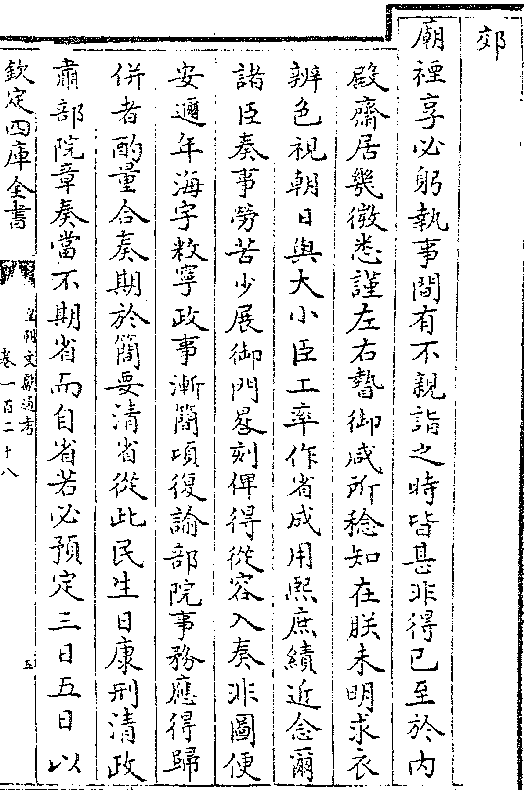 郊
廟禋享必躬執事間有不親詣之時皆甚非得已至於内
殿齋居幾微悉謹左右暬御咸所稔知在朕未明求衣
辨色視朝日與大小臣工率作省成用熙庶績近念爾
諸臣奏事勞苦少展御門晷刻俾得從容入奏非圖便
安邇年海宇敉寧政事漸簡項復諭部院事務應得歸
併者酌量合奏期於簡要清省從此民生日康刑清政
肅部院章奏當不期省而自省若必預定三日五日以
欽定四庫全書
皇朝文獻通考
卷一百二十八
五